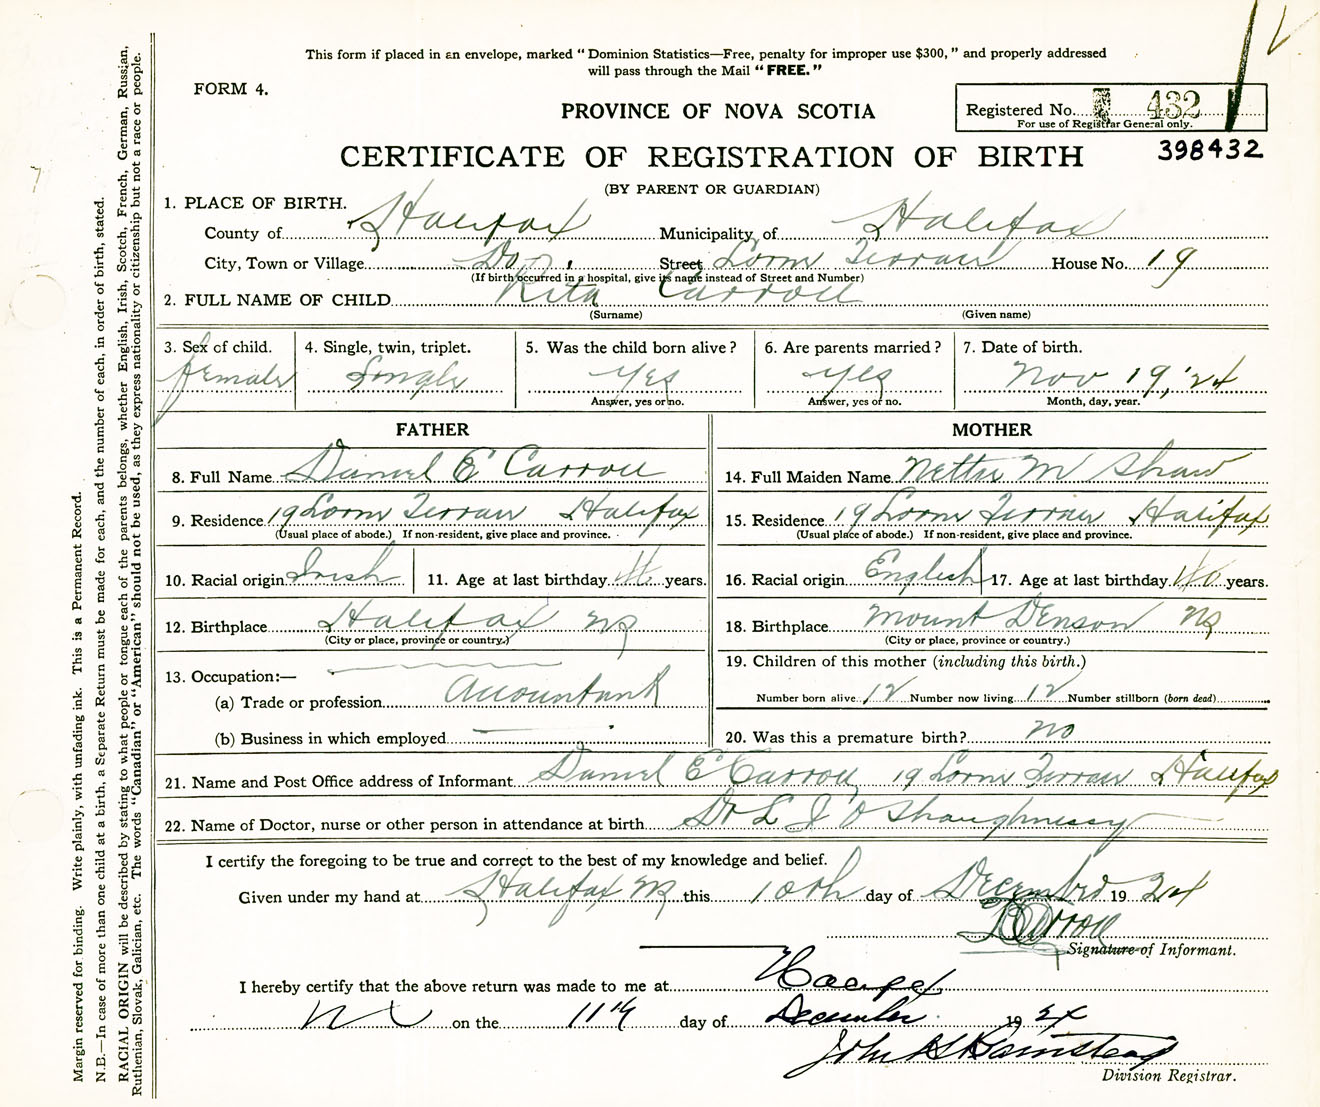 This form if placed in an envelope, marked "Dominion Statistics—Free, penalty for improper use $300," and properly addressed
will pass through the Mail "FREE."
FORM 4.
PROVINCE OF NOVA SCOTIA
Registered No. 432
For use of Registrar General only.
CERTIFICATE OF REGISTRATION OF BIRTH
398432
(BY PARENT OR GUARDIAN)
1. PLACE OF BIRTH.
County of Halifax Municipality of Halifax
City, Town or Village Do Street Lorne Terrace House No. 19
(If birth occurred in a hospital, give its name instead of Street and Number)
2. FULL NAME OF CHILD Rita Carroll
(Surname) (Given name)
3. Sex of child. 4. Single, twin, triplet. 5. Was the child born alive? 6. Are parents married? 7. Date of birth.
female Single yes yes Nov 19, '24
Answer, yes or no. Answer, yes or no. Month, day, year.
FATHER MOTHER
8. Full Name Daniel E Carroll 14. Full Maiden Name Nettie M Shaw
9. Residence 19 Lorne Terrace Halifax 15. Residence 19 Lorne Terrace Halifax
(Usual place of abode.) If non-resident, give place and province. (Usual place of abode.) If non-resident, give place and province.
10. Racial origin Irish 11. Age at last birthday years. 16. Racial origin English 17. Age at last birthday 40 years.
12. Birthplace Halifax NS 18. Birthplace Mount Denson NS
(City or place, province or country.) (City or place, province or country.)
13. Occupation:— 19. Children of this mother (including this birth.)
(a) Trade or profession Accountant Number born alive 12 Number now living 12 Number stillborn (born dead)
(b) Business in which employed 20. Was this a premature birth? no
21. Name and Post Office address of Informant Daniel E Carroll 19 Lorne Terrace Halifax
22. Name of Doctor, nurse or other person in attendance at birth Dr L J O'Shaughnessy
I certify the foregoing to be true and correct to the best of my knowledge and belief.
Given under my hand at Halifax NS this 10th day of December 1924
Carroll
Signature of Informant.
I hereby certify that the above return was made to me at Halifax
NS on the 11th day of December 1924
John
Division Registrar.
Margin reserved for binding. Write plainly, with unfading ink. This is a Permanent Record.
N.B.—In case of more than one child at a birth, a Separate Return must be made for each, and the number of each, in order of birth, stated.
RACIAL ORIGIN will be described by stating to what people or tongue each of the parents belongs, whether English, Irish, Scotch, French, German, Russian,
Ruthenian, Slovak, Galician, etc. The words "Canadian" or "American" should not be used, as they express nationality or citizenship but not a race or people.